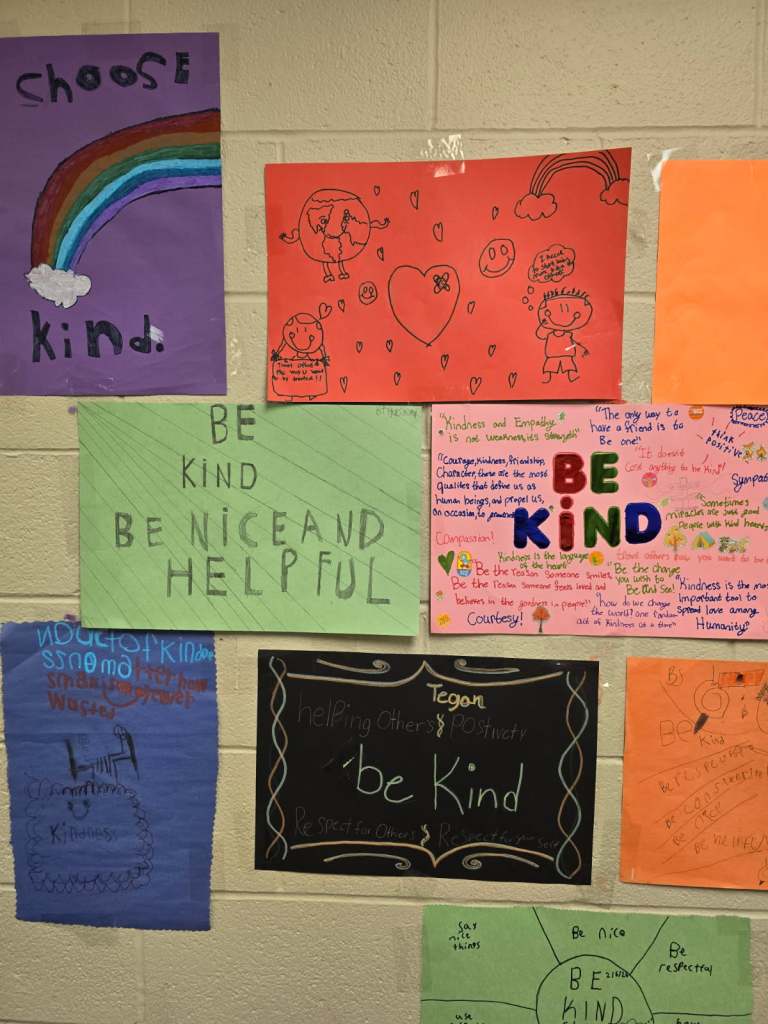 choose
kind.
Treat others
the way U want
to be treated!!
I Need
to start being
BE
KiND
BE NiCE AND
HELPFUL
"Kindness and Empathy
is not weakness, its strength"
"The only way to
have a friend is to
Be one!"
Peace
think
positive
"It doesnt
cost anything to be kind!"
"Courage, kindness, friendship,
Character, these are the most
qualites that define us as
human beings, and propel us,
on occasion, to
BE
KiND
Sympat
"Sometimes
miracles are just good
People with kind hearts
Compassion!
Kindness is the language
of the heart
treat others how you want to be
"Be the reason someone smiles,
Be the reason someone feels loved and
believes in the goodness in people"
"Be the change
you wish to
Be and See!
"how do we change
the world? one random
act of kindness at a time"
"Kindness is the most
important tool to
spread love among
Humanity"
Courtesy!
No act of kindes
Wasted
Kindness
Tegan
helping Others & Postivety
be Kind
Respect for Others & Respect for your self
Be
Kind
Be nice
Be helpful
say
nice
things
Be nice
Be
respectful
BE
KIND
use